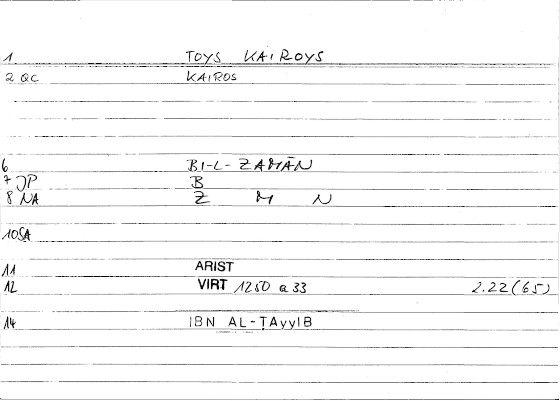 1 TOYS KAIROYS
2 QC KAIROS
6 BI-L-ZAMĀN
7 JP B
8 NA Z M N
10 SA
11 ARIST
12 VIRT 1250 a 33 2.22 (65)
14 IBN AL-ṬAyyIB